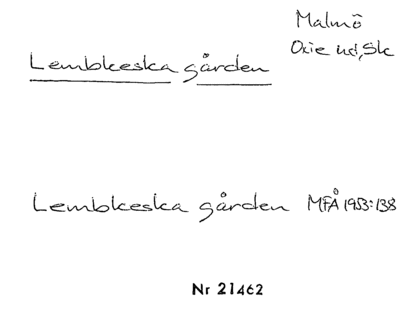 Malmö
Oxie hd, Sk
Lembkeska gården
Lembkeska gården MFÅ 1953:138
Nr 21462